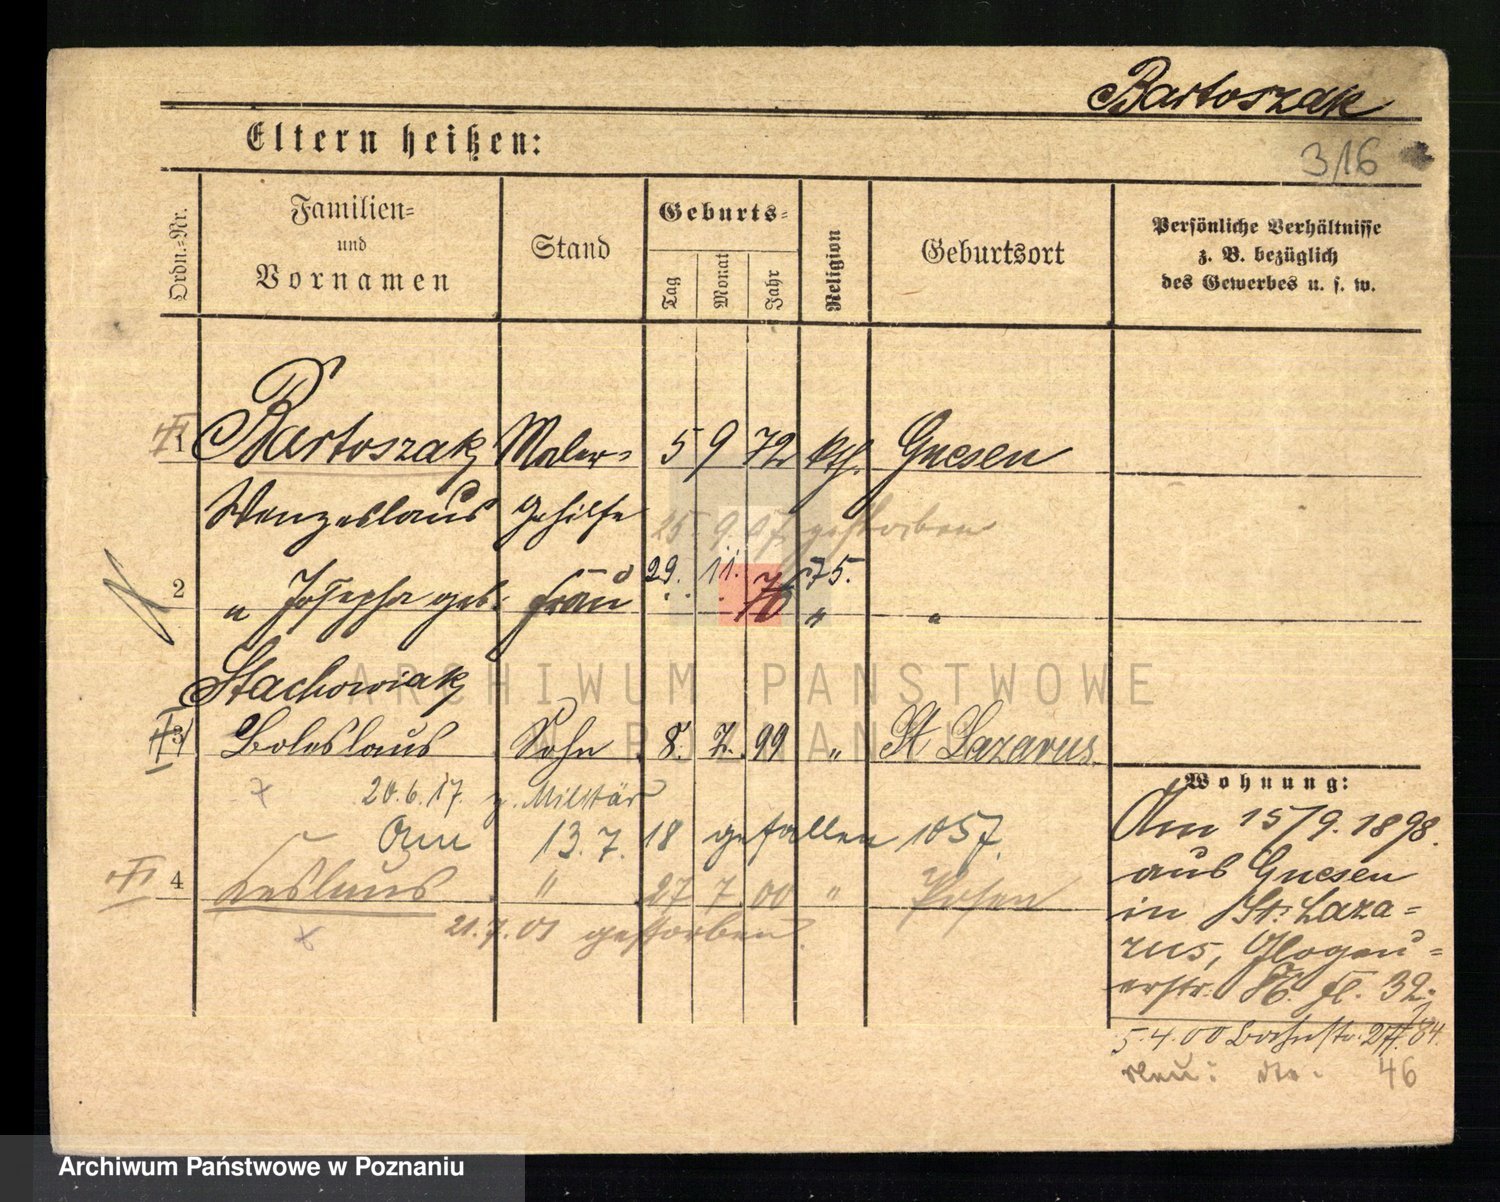 Bartoszak
Eltern heißen:
3/16
Ordn.-Nr.
Familien-
und
Vornamen
Stand
Geburts-
Tag
Monat
Jahr
Religion
Geburtsort
Persönliche Verhältnisse
z. B. bezüglich
des Gewerbes u. s. w.
1 Bartoszak Maler- 5 9 72 kth. Gnesen
Wenzeslaus Gehilfe
25. 9. 07. gestorben
29. 11. 75.
2 " Josepha geb. Frau 76 " "
Stachowiak
3 Boleslaus Sohn 8. 2. 99 " St Lazarus
20.6.17. z. Militär
Am 13.7.18 gefallen 1057.
4 Ceslaus " 27 7 00 " Posen
21.7.01 gestorben.
Wohnung:
Am 15/9. 1898.
aus Gnesen
in St. Laza-
rus, Glogau-
erstr. 76. 32.
5.4.00 Bahnstr. 84.
neu: 46
ARCHIWUM PANSTWOWE
W POZNANIU
Archiwum Państwowe w Poznaniu